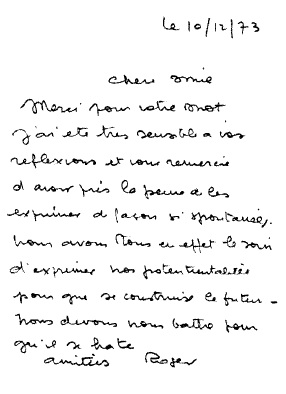 le 10/12/73
chere amie
Merci pour votre mot
j'ai ete tres sensible a vos
reflexions et vous remercie
d avoir pris la peine de les
exprimer d façon si spontanée,
Nous avons tous en effet le soin
d'exprimer nos potentialités
pour que se construise le futur -
Nous devons nous battre pour
qu'il se hate
amitiés Roger